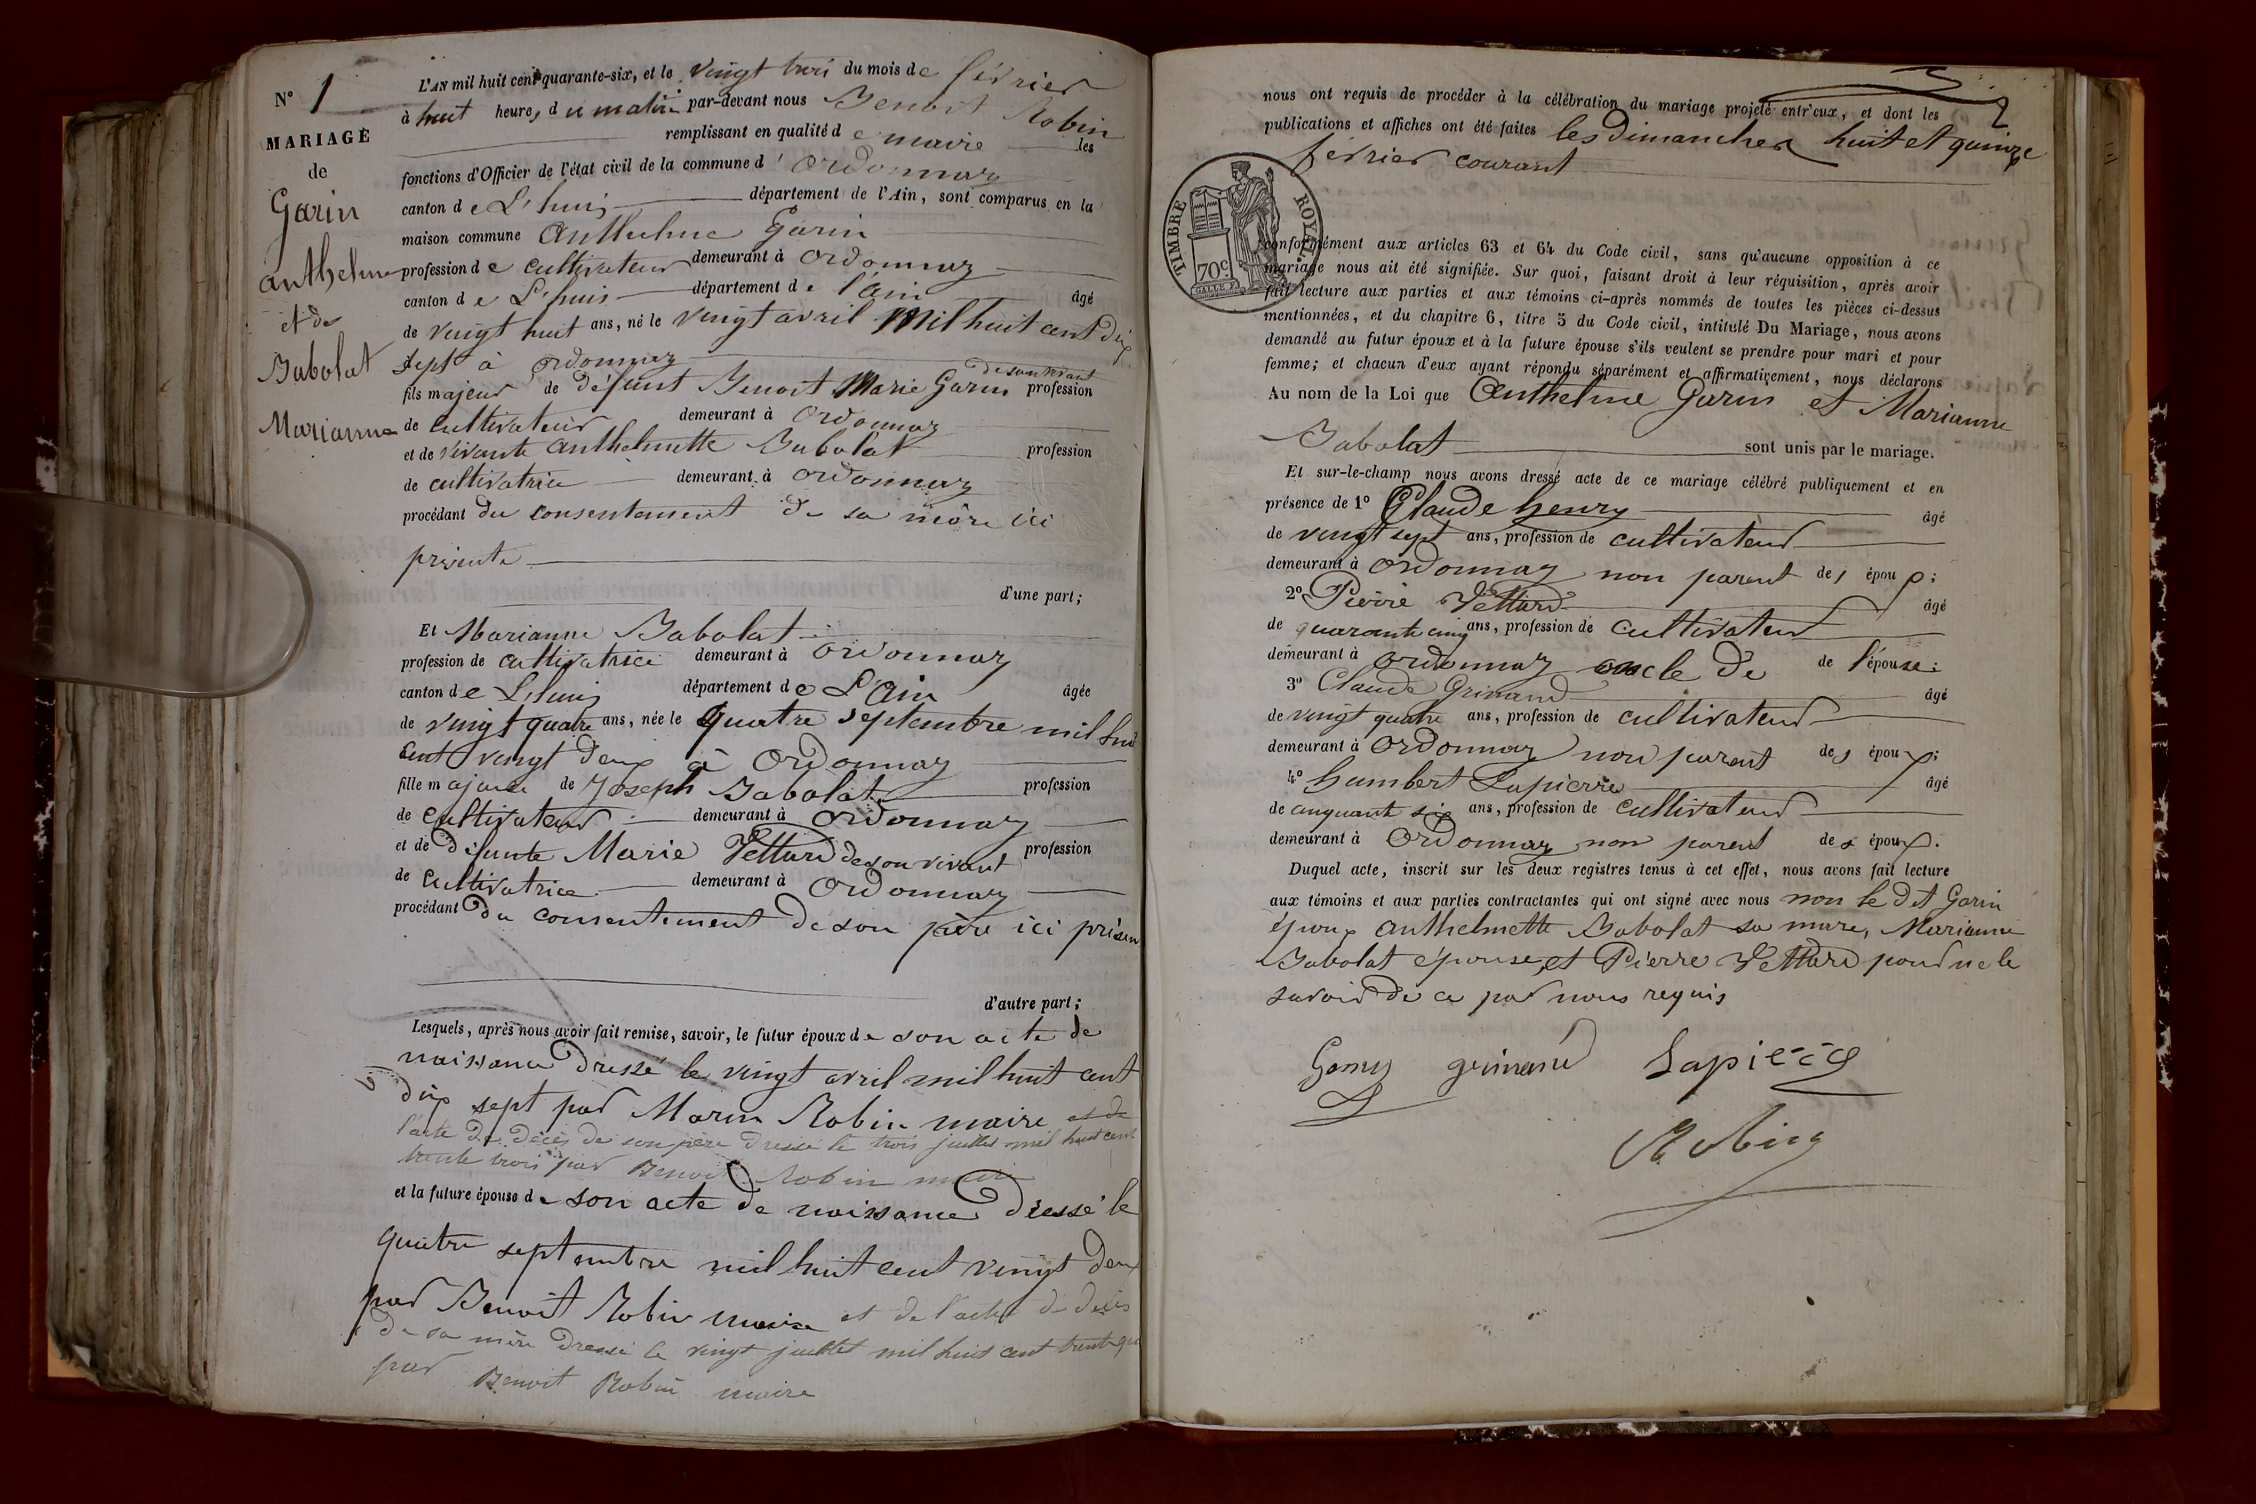 N° 1
MARIAGE
de
Garin
anthelme
et de
Babolat
Marianne
L'AN mil huit cent quarante-six, et le vingt trois du mois de février
à huit heures du matin par-devant nous Benoit Robin
remplissant en qualité de maire les
fonctions d'Officier de l'état civil de la commune d'ordonnaz
canton de L'huis département de l'Ain, sont comparus en la
maison commune Anthelme Garin
profession de cultivateur demeurant à ordonnaz
canton de L'huis département de l'ain âgé
de vingt huit ans, né le vingt avril mil huit cent dix
sept à ordonnaz
de son vivant
fils majeur de défunt Benoit Marie Garin profession
de cultivateur demeurant à ordonnaz
et de vivante anthelmette Babolat profession
de cultivatrice demeurant à ordonnaz
procédant du consentement de sa mère ici
présente
d'une part;
Et Marianne Babolat
profession de cultivatrice demeurant à ordonnaz
canton de L'huis département de L'Ain âgée
de vingt quatre ans, née le quatre septembre mil huit
cent vingt deux à ordonnaz
fille majeure de Joseph Babolat profession
de cultivateur demeurant à ordonnaz
et de défunte Marie Vettard de son vivant profession
de cultivatrice demeurant à ordonnaz
procédant du consentement de son père ici présen
d'autre part;
Lesquels, après nous avoir fait remise, savoir, le futur époux de son acte de
naissance dressé le vingt avril mil huit cent
dix sept par Marin Robin maire et de
l'acte de décès de son père dressé le trois juillet mil huit cent
trente trois par Benoit Robin maire
et la future épouse de son acte de naissance dressé le
quatre septembre mil huit cent vingt deux
par Benoit Robin maire et de l'acte de décès
de sa mère dressé le vingt juillet mil huit cent trente
par Benoit Robin maire
nous ont requis de procéder à la célébration du mariage projeté entr'eux, et dont les
publications et affiches ont été faites les dimanches huit et quinze
février courant
TIMBRE ROYAL.
70c
conformément aux articles 63 et 64 du Code civil, sans qu'aucune opposition à ce
mariage nous ait été signifiée. Sur quoi, faisant droit à leur réquisition, après avoir
fait lecture aux parties et aux témoins ci-après nommés de toutes les pièces ci-dessus
mentionnées, et du chapitre 6, titre 5 du Code civil, intitulé Du Mariage, nous avons
demandé au futur époux et à la future épouse s'ils veulent se prendre pour mari et pour
femme; et chacun d'eux ayant répondu séparément et affirmativement, nous déclarons
Au nom de la Loi que Anthelme Garin et Marianne
Babolat sont unis par le mariage.
Et sur-le-champ nous avons dressé acte de ce mariage célébré publiquement et en
présence de 1° Claude henry âgé
de vingt sept ans, profession de cultivateur
demeurant à ordonnaz non parent des époux;
2° Pierre Vettard âgé
de quarante cinq ans, profession de cultivateur
demeurant à ordonnaz oncle de de l'épouse;
3° Claude Grinand âgé
de vingt quatre ans, profession de cultivateur
demeurant à ordonnaz non parent des époux;
4° humbert Lapierre âgé
de cinquante six ans, profession de cultivateur
demeurant à ordonnaz non parent des époux.
Duquel acte, inscrit sur les deux registres tenus à cet effet, nous avons fait lecture
aux témoins et aux parties contractantes qui ont signé avec nous non le dit Garin
époux anthelmette Babolat sa mere, Marianne
Babolat épouse, et Pierre Vettard pour ne le
savoir de ce par nous requis
grinand Lapierre
Robin